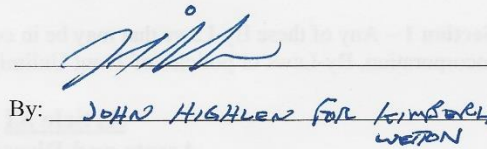 By: JOHN HIGHLEN FOR KIMBERL
WETTON